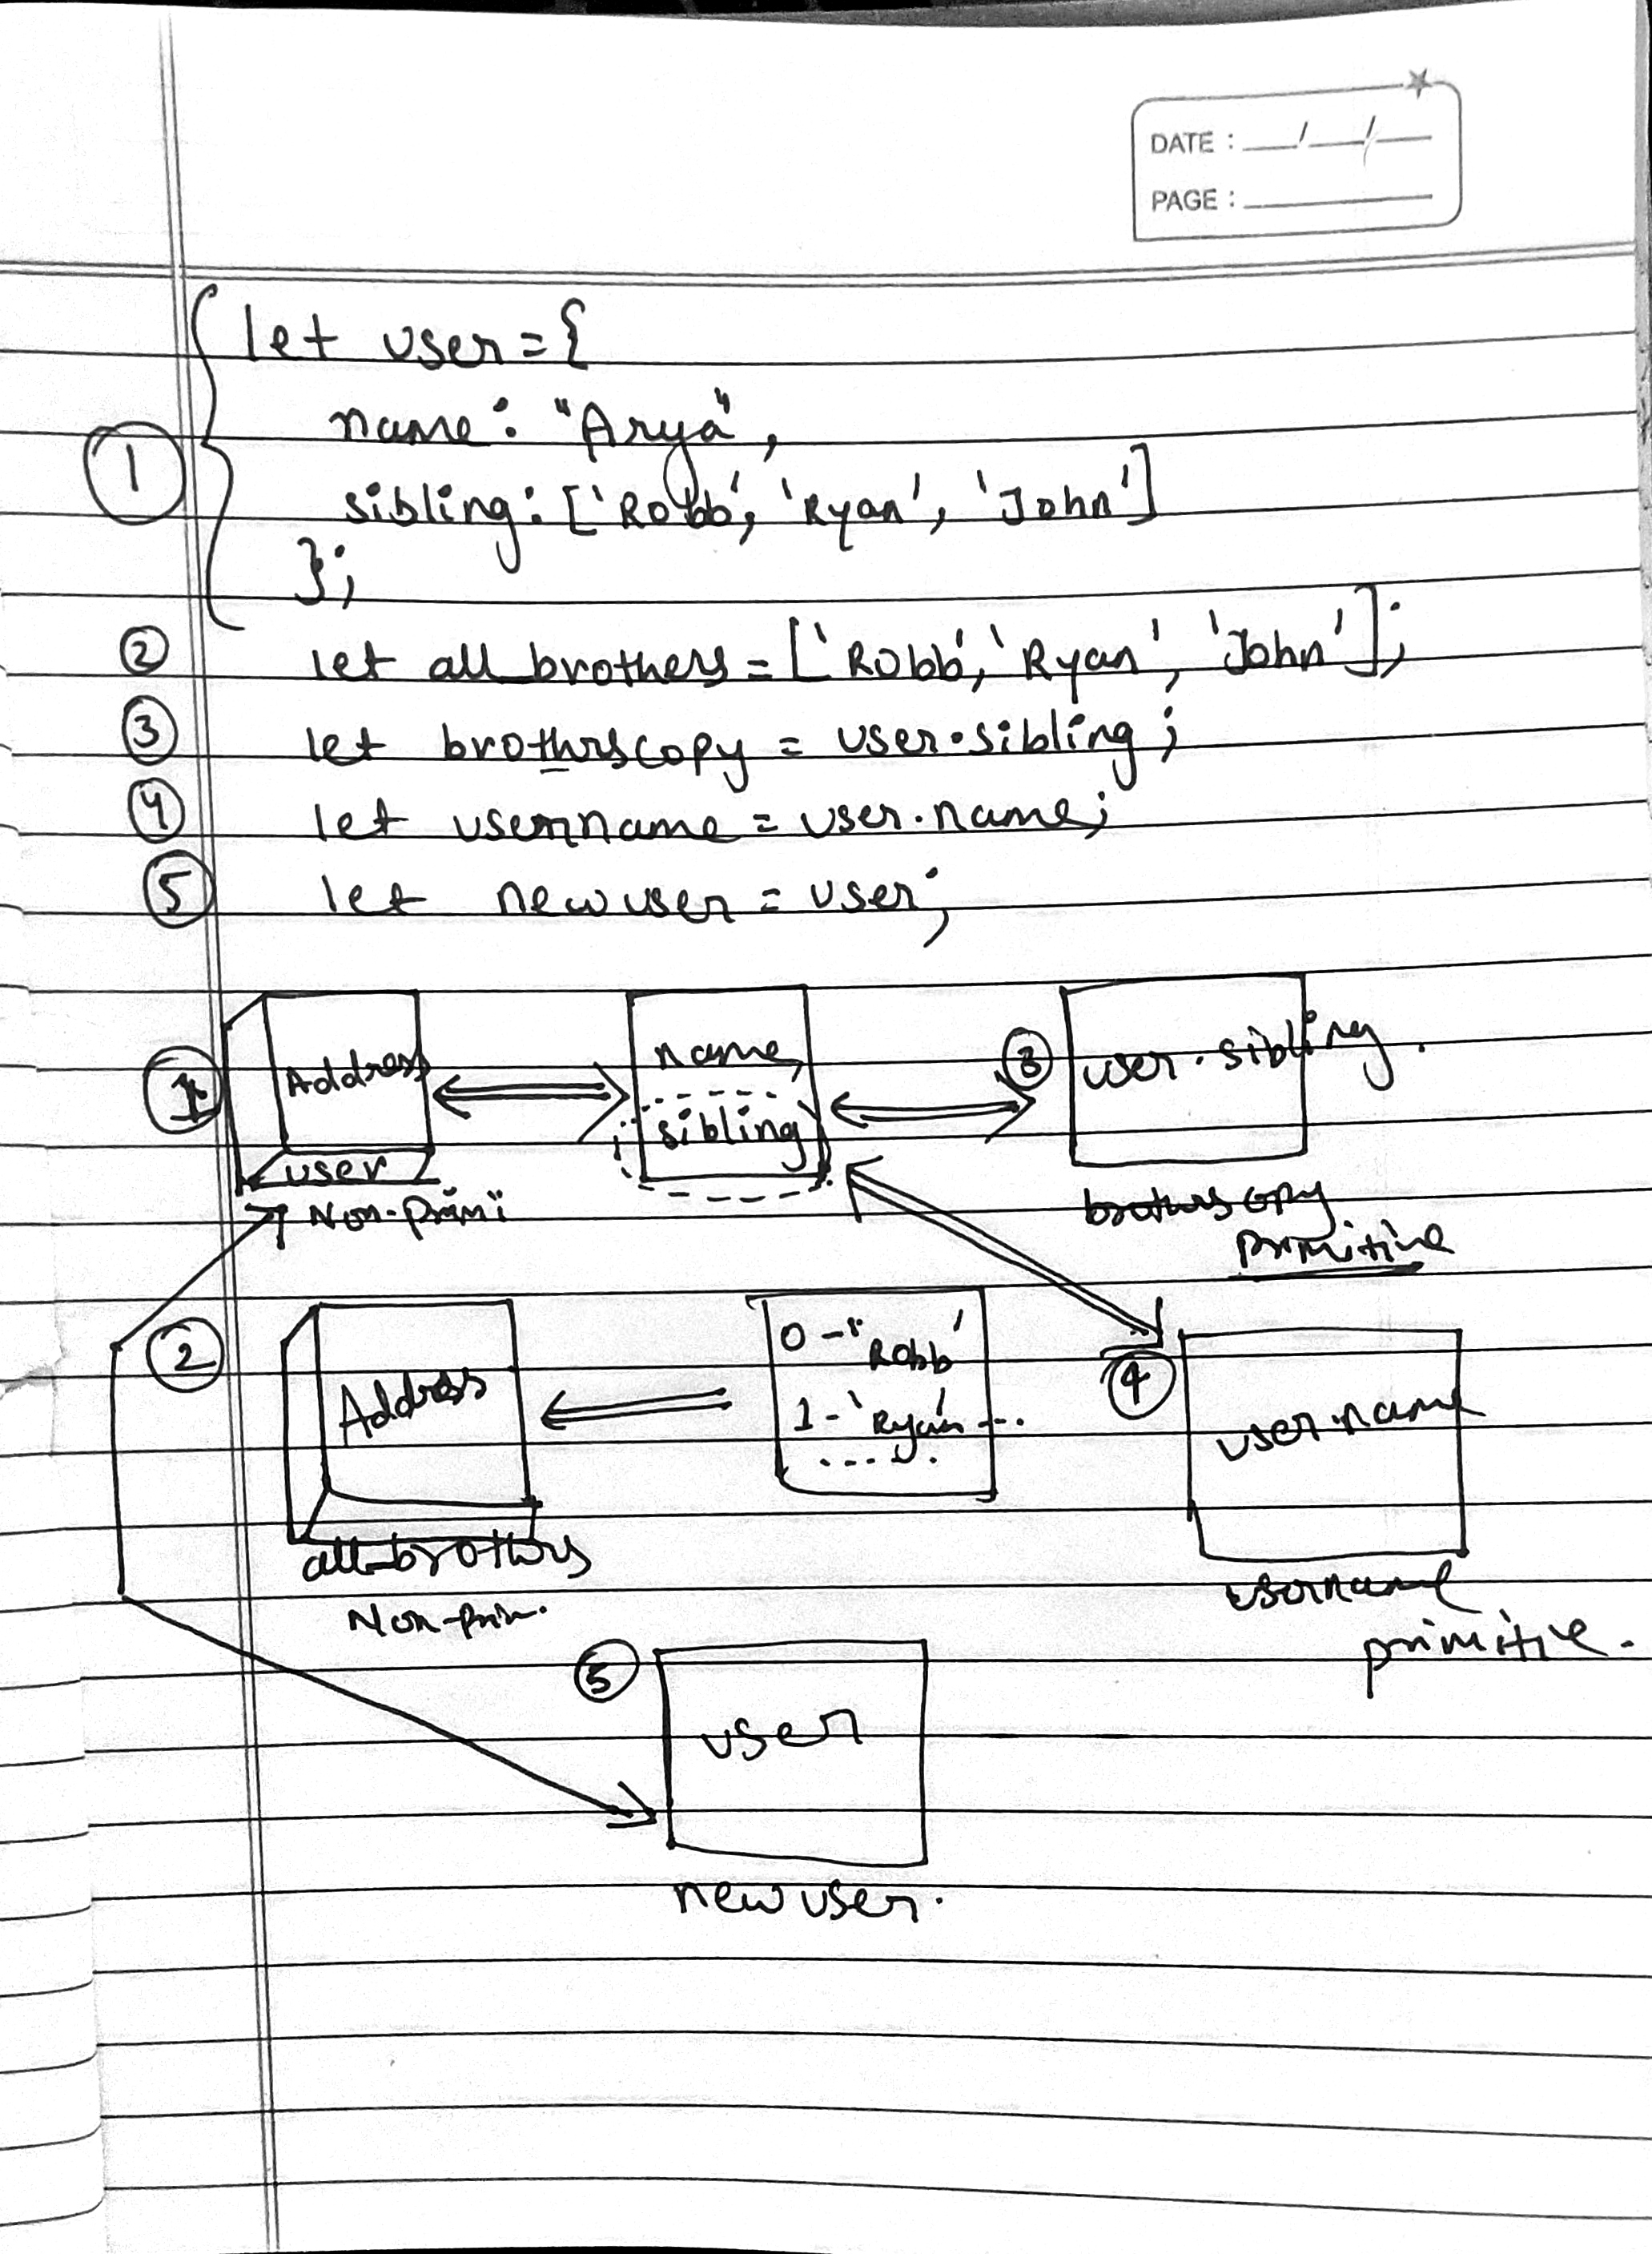 DATE : __/__/__
PAGE : ______
let user = {
① name: "Arya",
sibling: ['Robb', 'Ryan', 'John']
};
② let all_brothers = ['Robb', 'Ryan', 'John'];
③ let brothrscopy = user.sibling;
④ let usernname = user.name;
⑤ let newuser = user;
1 Address
user
Non-primi
name,
sibling
③ user.sibling.
brothrscopy
primitive
② Address
all_brothrs
Non-prim.
0 - "Robb'
1 - 'Ryan' - ..
.....
④ user.name
username
primitive.
⑤ user
newuser.